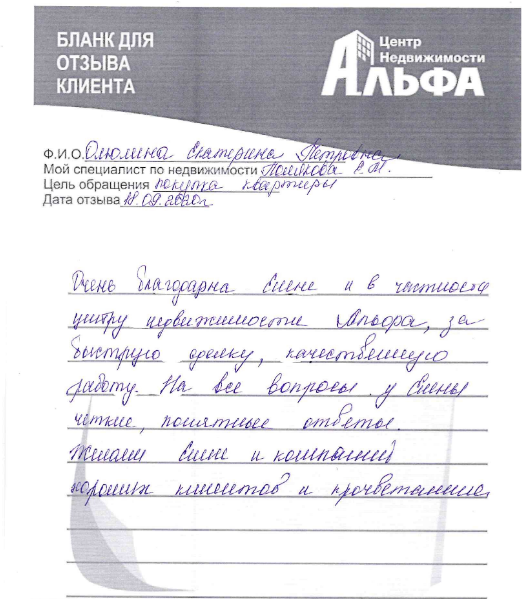 БЛАНК ДЛЯ
ОТЗЫВА
КЛИЕНТА
Центр
Недвижимости
АЛЬФА
Ф.И.О. Екатерина Петровна
Мой специалист по недвижимости Полякова Е.М.
Цель обращения покупка квартиры
Дата отзыва 18.09.2020г.
Очень благодарна Елене и в частности
центру недвижимости Альфа, за
быструю сделку, качественную
работу. На все вопросы у Елены
чёткие, понятные ответы.
Желаем Елене и компании
хороших клиентов и процветания.